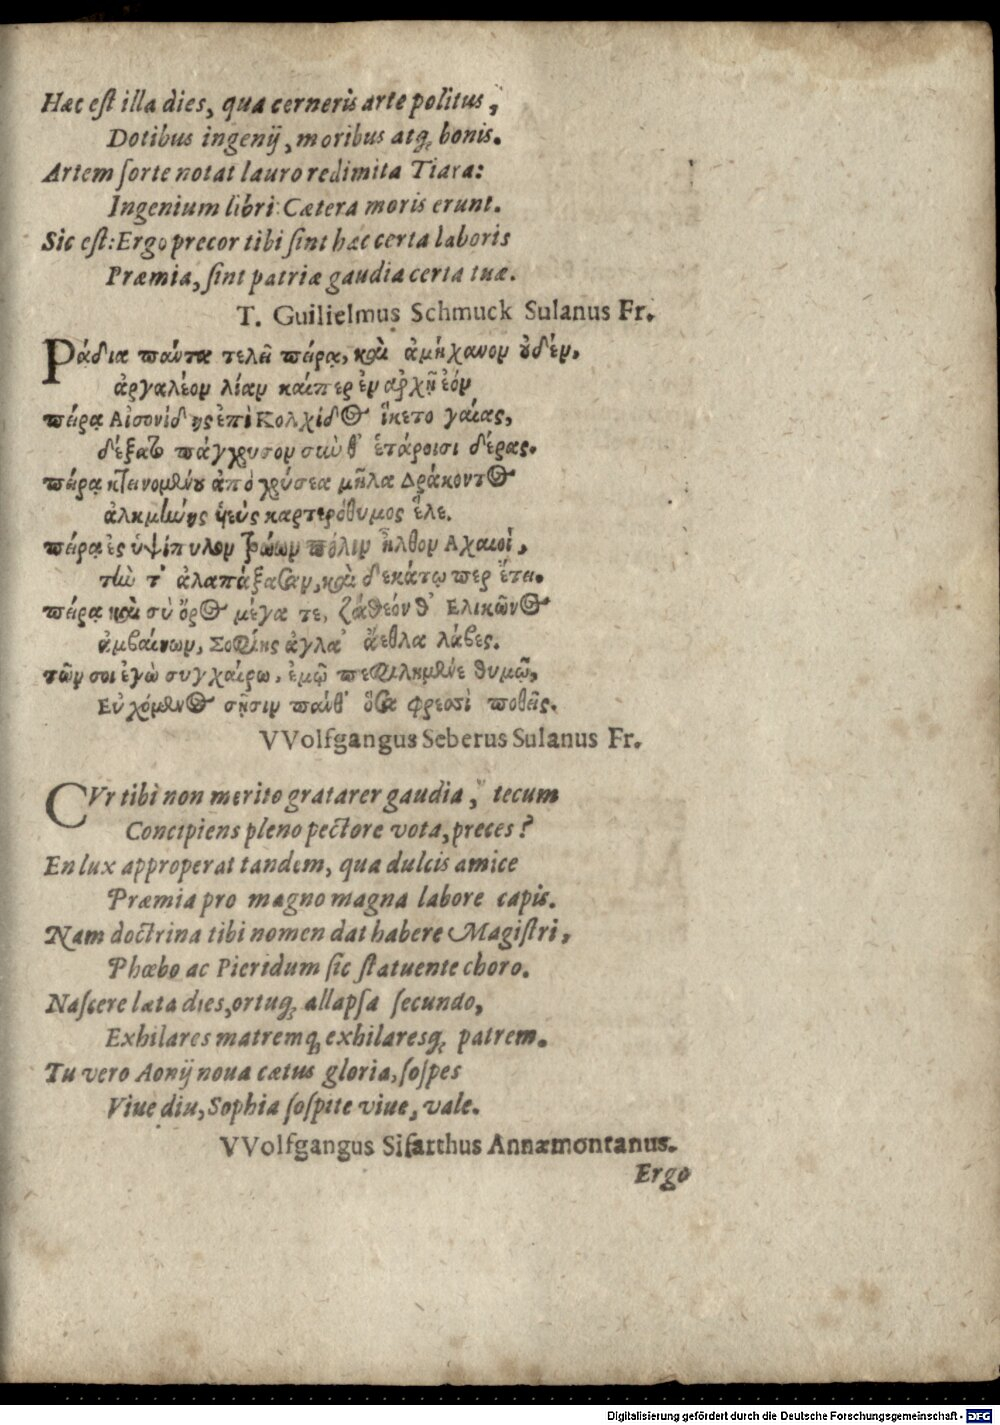 Hæc est illa dies, qua cerneris arte politus,
Dotibus ingenij, moribus atq; bonis.
Artem sorte notat lauro redimita Tiara:
Ingenium libri: Cætera moris erunt.
Sic est: Ergo precor tibi sint hæc certa laboris
Præmia, sint patriæ gaudia certa tuæ.
T. Guilielmus Schmuck Sulanus Fr.
Ῥάδια πάντα τελεῖ πείρᾳ, καὶ ἀμήχανον οὐδέν,
ἀργαλέον λίαν καίπερ ἐν ἀρχῇ ἐόν
πείρᾳ Αἰσονίδης ἐπὶ Κολχίδος ἵκετο γαίας,
δέξατο πάγχρυσον σὺν θ' ἑτάροισι δέρας.
πείρᾳ κτεινομένου ἀπὸ χρύσεα μῆλα Δράκοντος
ἀλκμήνης ὑεύς καρτερόθυμος ἕλε.
πείρᾳ ἐς ὑψίπυλον Τρώων πόλιν ἦλθον Αχαιοί,
τὴν τ' ἀλαπάξασαν, καὶ δεκάτῳ περ ἔτει.
πείρᾳ καὶ σὺ ὄρος μέγα τε, ζάθεόν θ' Ελικῶνος
ἀμβαίνων, Σοφίης ἀγλα' ἄεθλα λάβες.
τῶν σοι ἐγὼ συγχαίρω, ἐμῷ πεφιλημένε θυμῷ,
Εὐχόμενος σῇσιν πάνθ' ὅσα φρεσὶ ποθεῖς.
VVolfgangus Seberus Sulanus Fr.
CVr tibi non merito gratarer gaudia, tecum
Concipiens pleno pectore vota, preces?
En lux approperat tandem, qua dulcis amice
Præmia pro magno magna labore capis.
Nam doctrina tibi nomen dat habere Magistri,
Phœbo ac Pieridum sic statuente choro.
Nascere læta dies, ortuq; allapsa secundo,
Exhilares matremq; exhilaresq; patrem.
Tu vero Aonij noua cætus gloria, sospes
Viue diu, Sophia sospite viue, vale.
VVolfgangus Sifarthus Annæmontanus.
Ergo
Digitalisierung gefördert durch die Deutsche Forschungsgemeinschaft - DFG